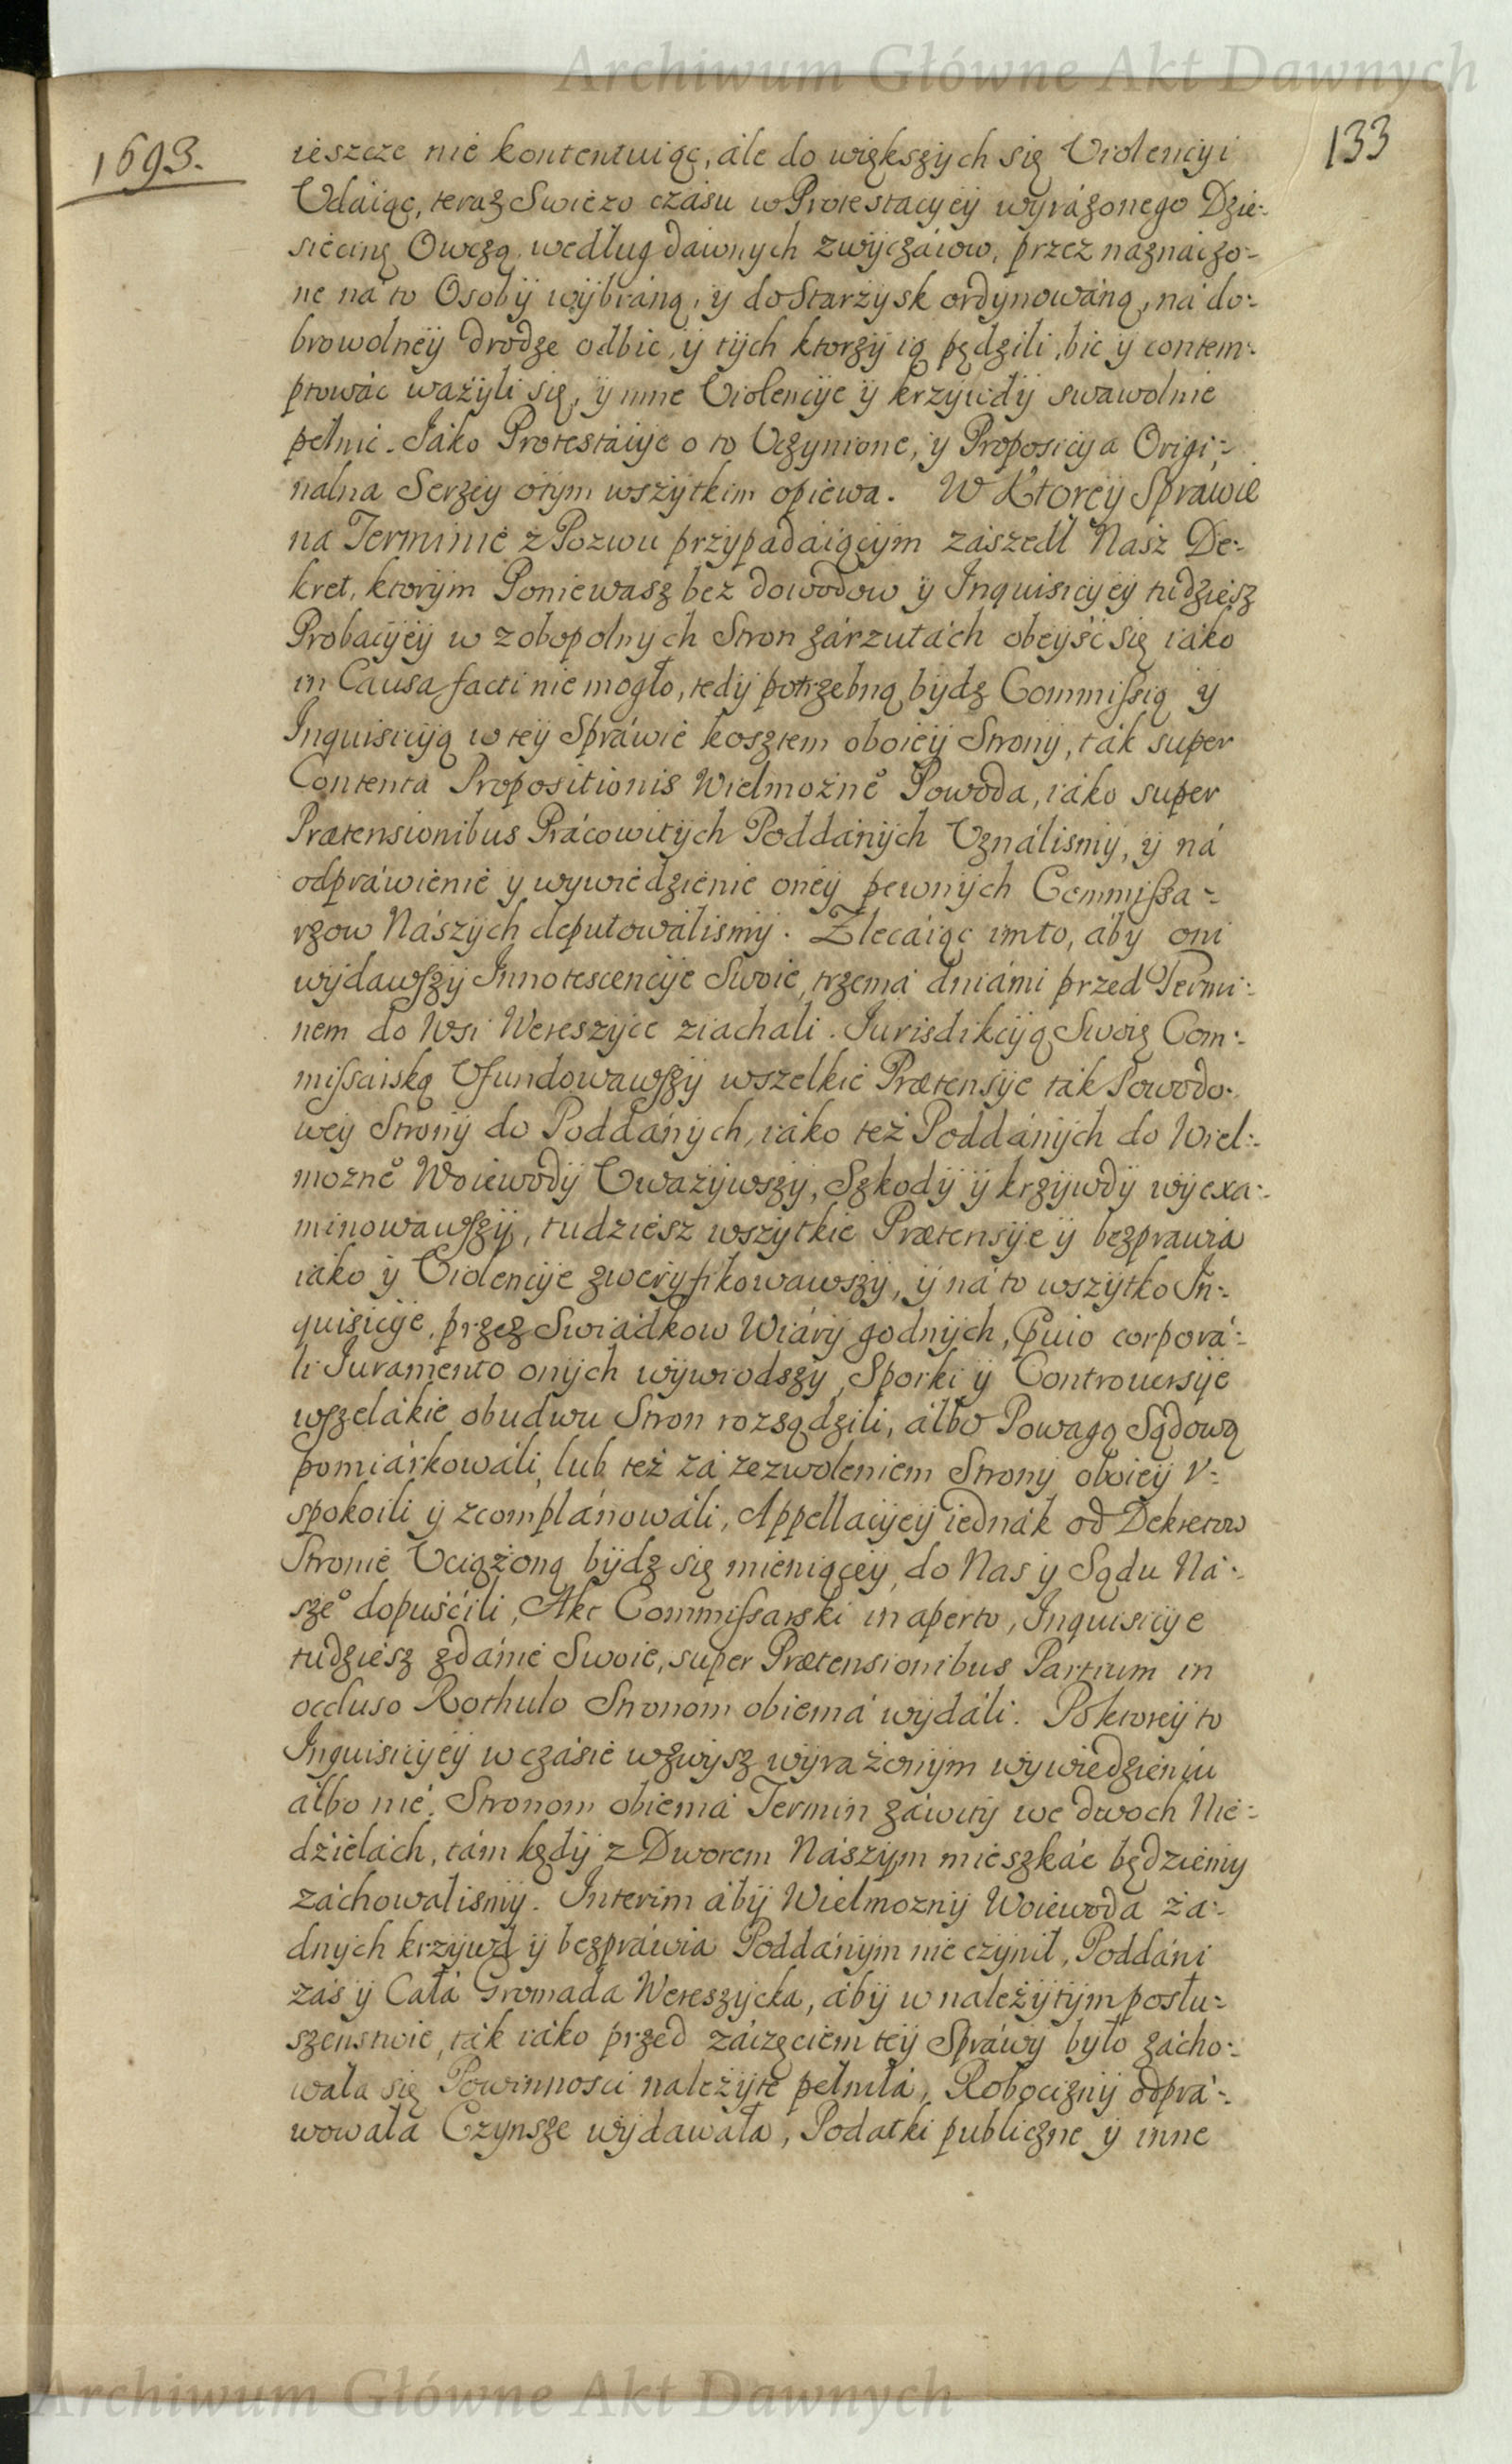 Archiwum Główne Akt Dawnych
1693.
133
ieszcze nie kontentuiąc, ále do większych się Violencyi
Udáiąc, teraz Swieżo czásu w Protestacyey wyráżonego Dzie-
sięcinę Owczą, według dawnych zwyczáiow, przez náznáczo-
ne ná to Osoby wybráną, y do Starzysk ordynowáną, ná do-
browolney drodze odbić, y tych ktorzy ią pędzili, bić y contem-
ptowáć ważyli się, y inne Violencye y krzywdy swawolnie
pełnić. Jáko Protestácye o to Uczynione, y Proposicya Origi-
nalna Serzey o tym wszytkim opiewa. W Ktorey Sprawie
na Terminie z Pozwu przypadáiącym zászedł Nász De-
kret, ktorym Poniewasz bez dowodow y Inquisicyey tudziesz
Probacyey w zobopolnych Stron zárzutách obeyść się iáko
in Causa facti nie mogło, tedy potrzebną bydz Commissią y
Inquisicyą w tey Spráwie kosztem oboiey Strony, ták super
Contenta Propositionis Wielmożne° Powoda, iáko super
Prætensionibus Prácowitych Poddánych Uználismy, y ná
odpráwienie y wywiedzienie oney pewnych Commissa-
rzow Nászych deputowálismy. Zlecáiąc im to, áby oni
wydawszy Innotescencye Swoie, trzemá dniámi przed Termi-
nem do Wsi Wereszyce ziachali. Jurisdikcyą Swoię Com-
missáiską Ufundowawszy wszelkie Prætensye ták Powodo-
wey Strony do Poddánych, iáko też Poddánych do Wiel-
możne° Woiewody Uważywszy, Szkody y krzywdy wyexa-
minowawszy, tudziesz wszytkie Prætensye y bezprawia
iáko y Violencye zweryfikowawszy, y ná to wszytko In-
quisicye, przez Swiádkow Wiáry godnych, Pvio corporá-
li Juramento onych wywiodszy, Sporki y Controuersye
wszelákie obudwu Stron rozsądzili, álbo Powagą Sądową
pomiárkowáli, lub też zá zezwoleniem Strony oboiey v-
spokoili y zcomplánowáli, Appellacyey iednák od Dekretow
Stronie Uciążoną bydz się mieniącey, do Nas y Sądu Ná-
sze° dopuścili, Akt Commissarski in aperto, Inquisicye
tudziesz zdánie Swoie, super Prætensionibus Partium in
occluso Rothulo Stronom obiemá wydáli. Po ktorey to
Inquisicyey w czásie wzwysz wyrażonym wywiedzieniu
álbo nie, Stronom obiemá Termin záwity we dwoch Nie-
dzielách, tám kędy z Dworem Nászym mieszkáć będziemy
záchowalismy. Interim áby Wielmozny Woiewoda ża-
dnych krzywd y bezpráwia Poddánym nie czynił, Poddáni
zás y Cáłá Gromáda Wereszycka, áby w należytym posłu-
szenstwie, ták iáko przed záczęciem tey Spráwy było zácho-
wała się Powinnosci należyte pełniłá, Robocizny odprá-
wowáła Czynsze wydawałá, Podatki publiczne y inne
Archiwum Główne Akt Dawnych